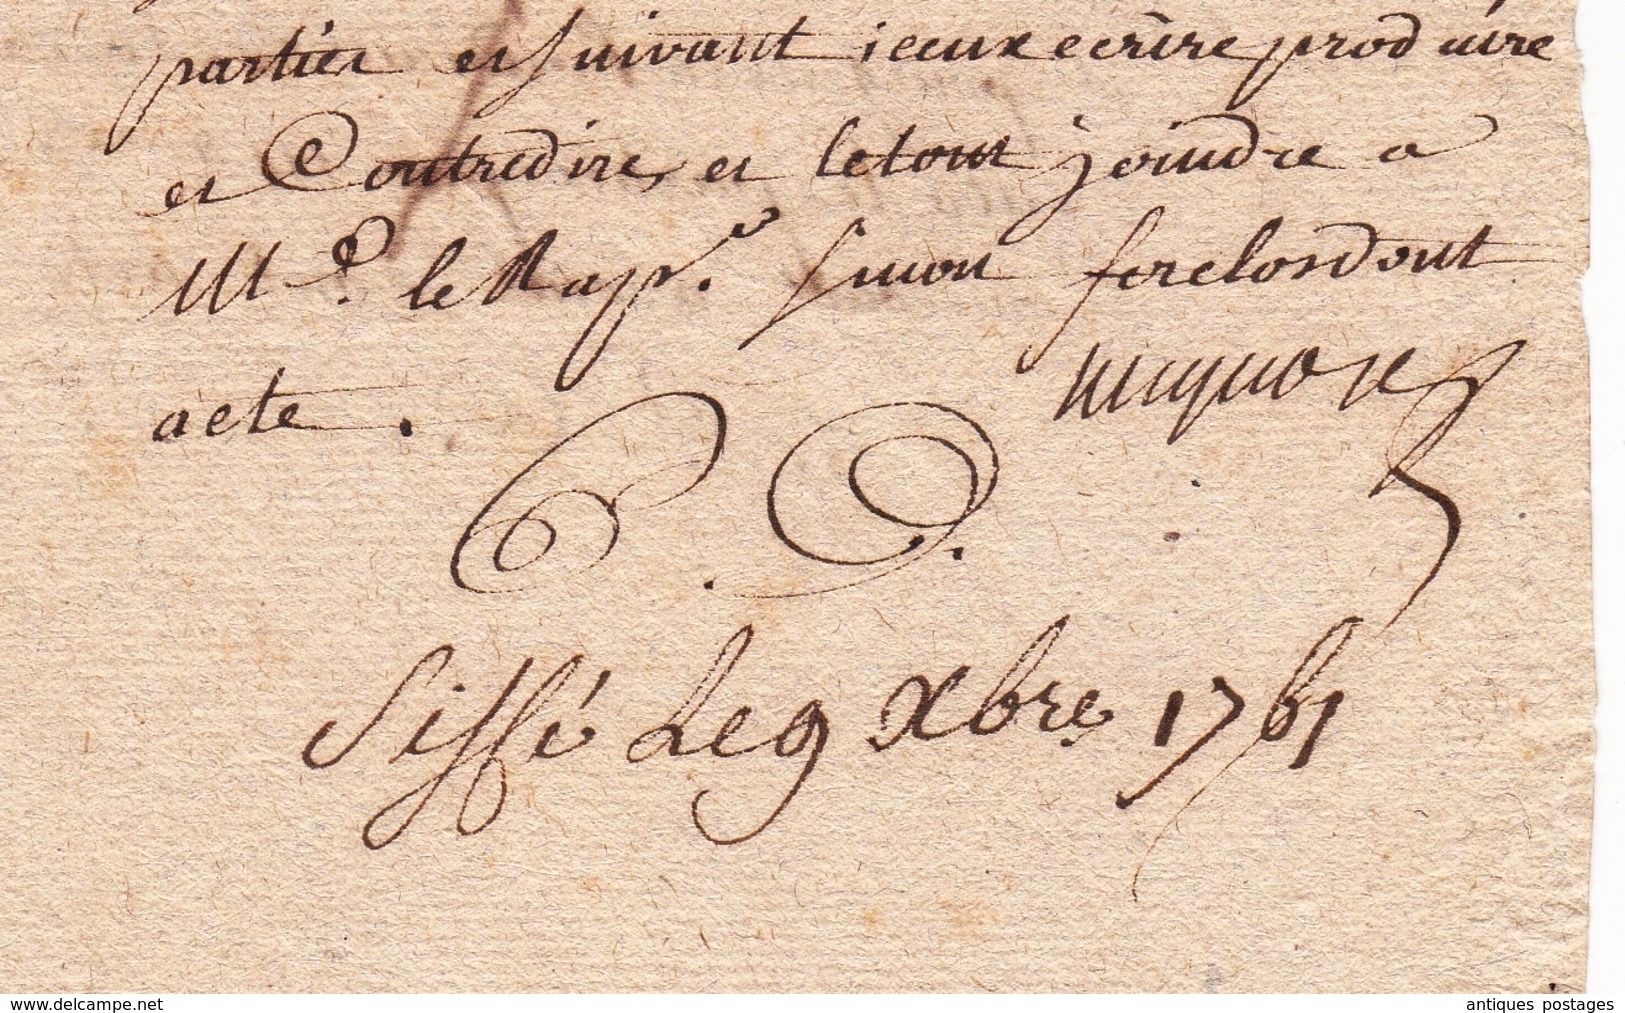 parties et suivant iceux ecrire produire
et Contredire, et le tout joindre a
Mr. le Rapr. sinon forclos dont
acte.
Siffé Le 9 Xbre 1761
www.delcampe.net
antiques postages